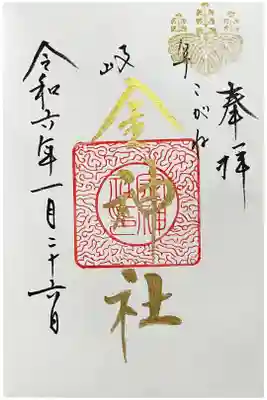 奉拝
岐阜
こがね
金神社
令和六年一月二十六日